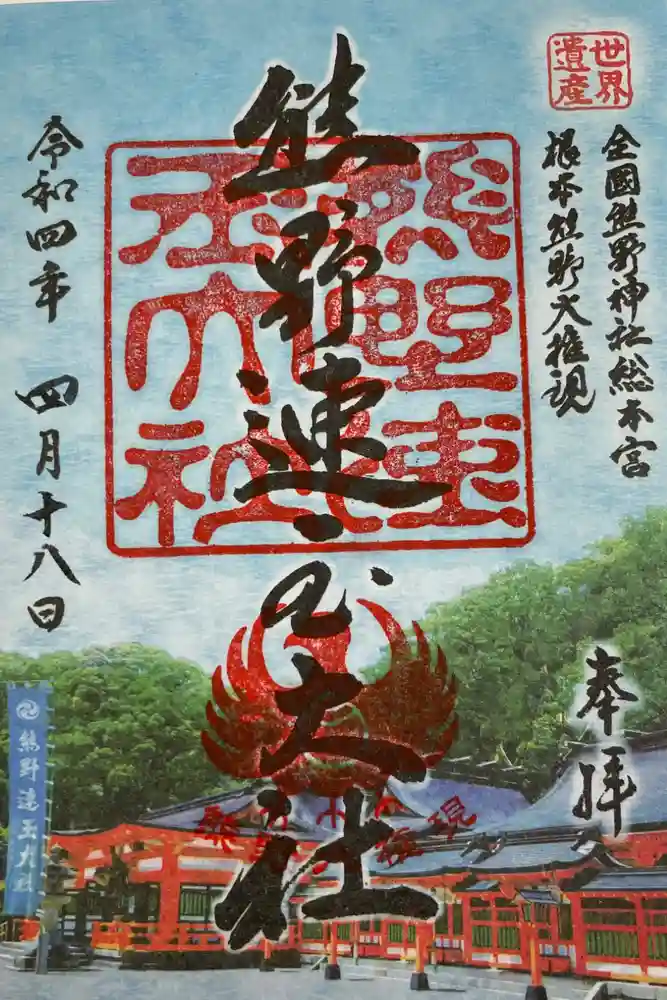 世界
遺産
全國熊野神社総本宮
根本熊野大権現
奉拝
熊野速玉大社
熊野速
玉大社
令和四年 四月十八日
熊野速玉大社